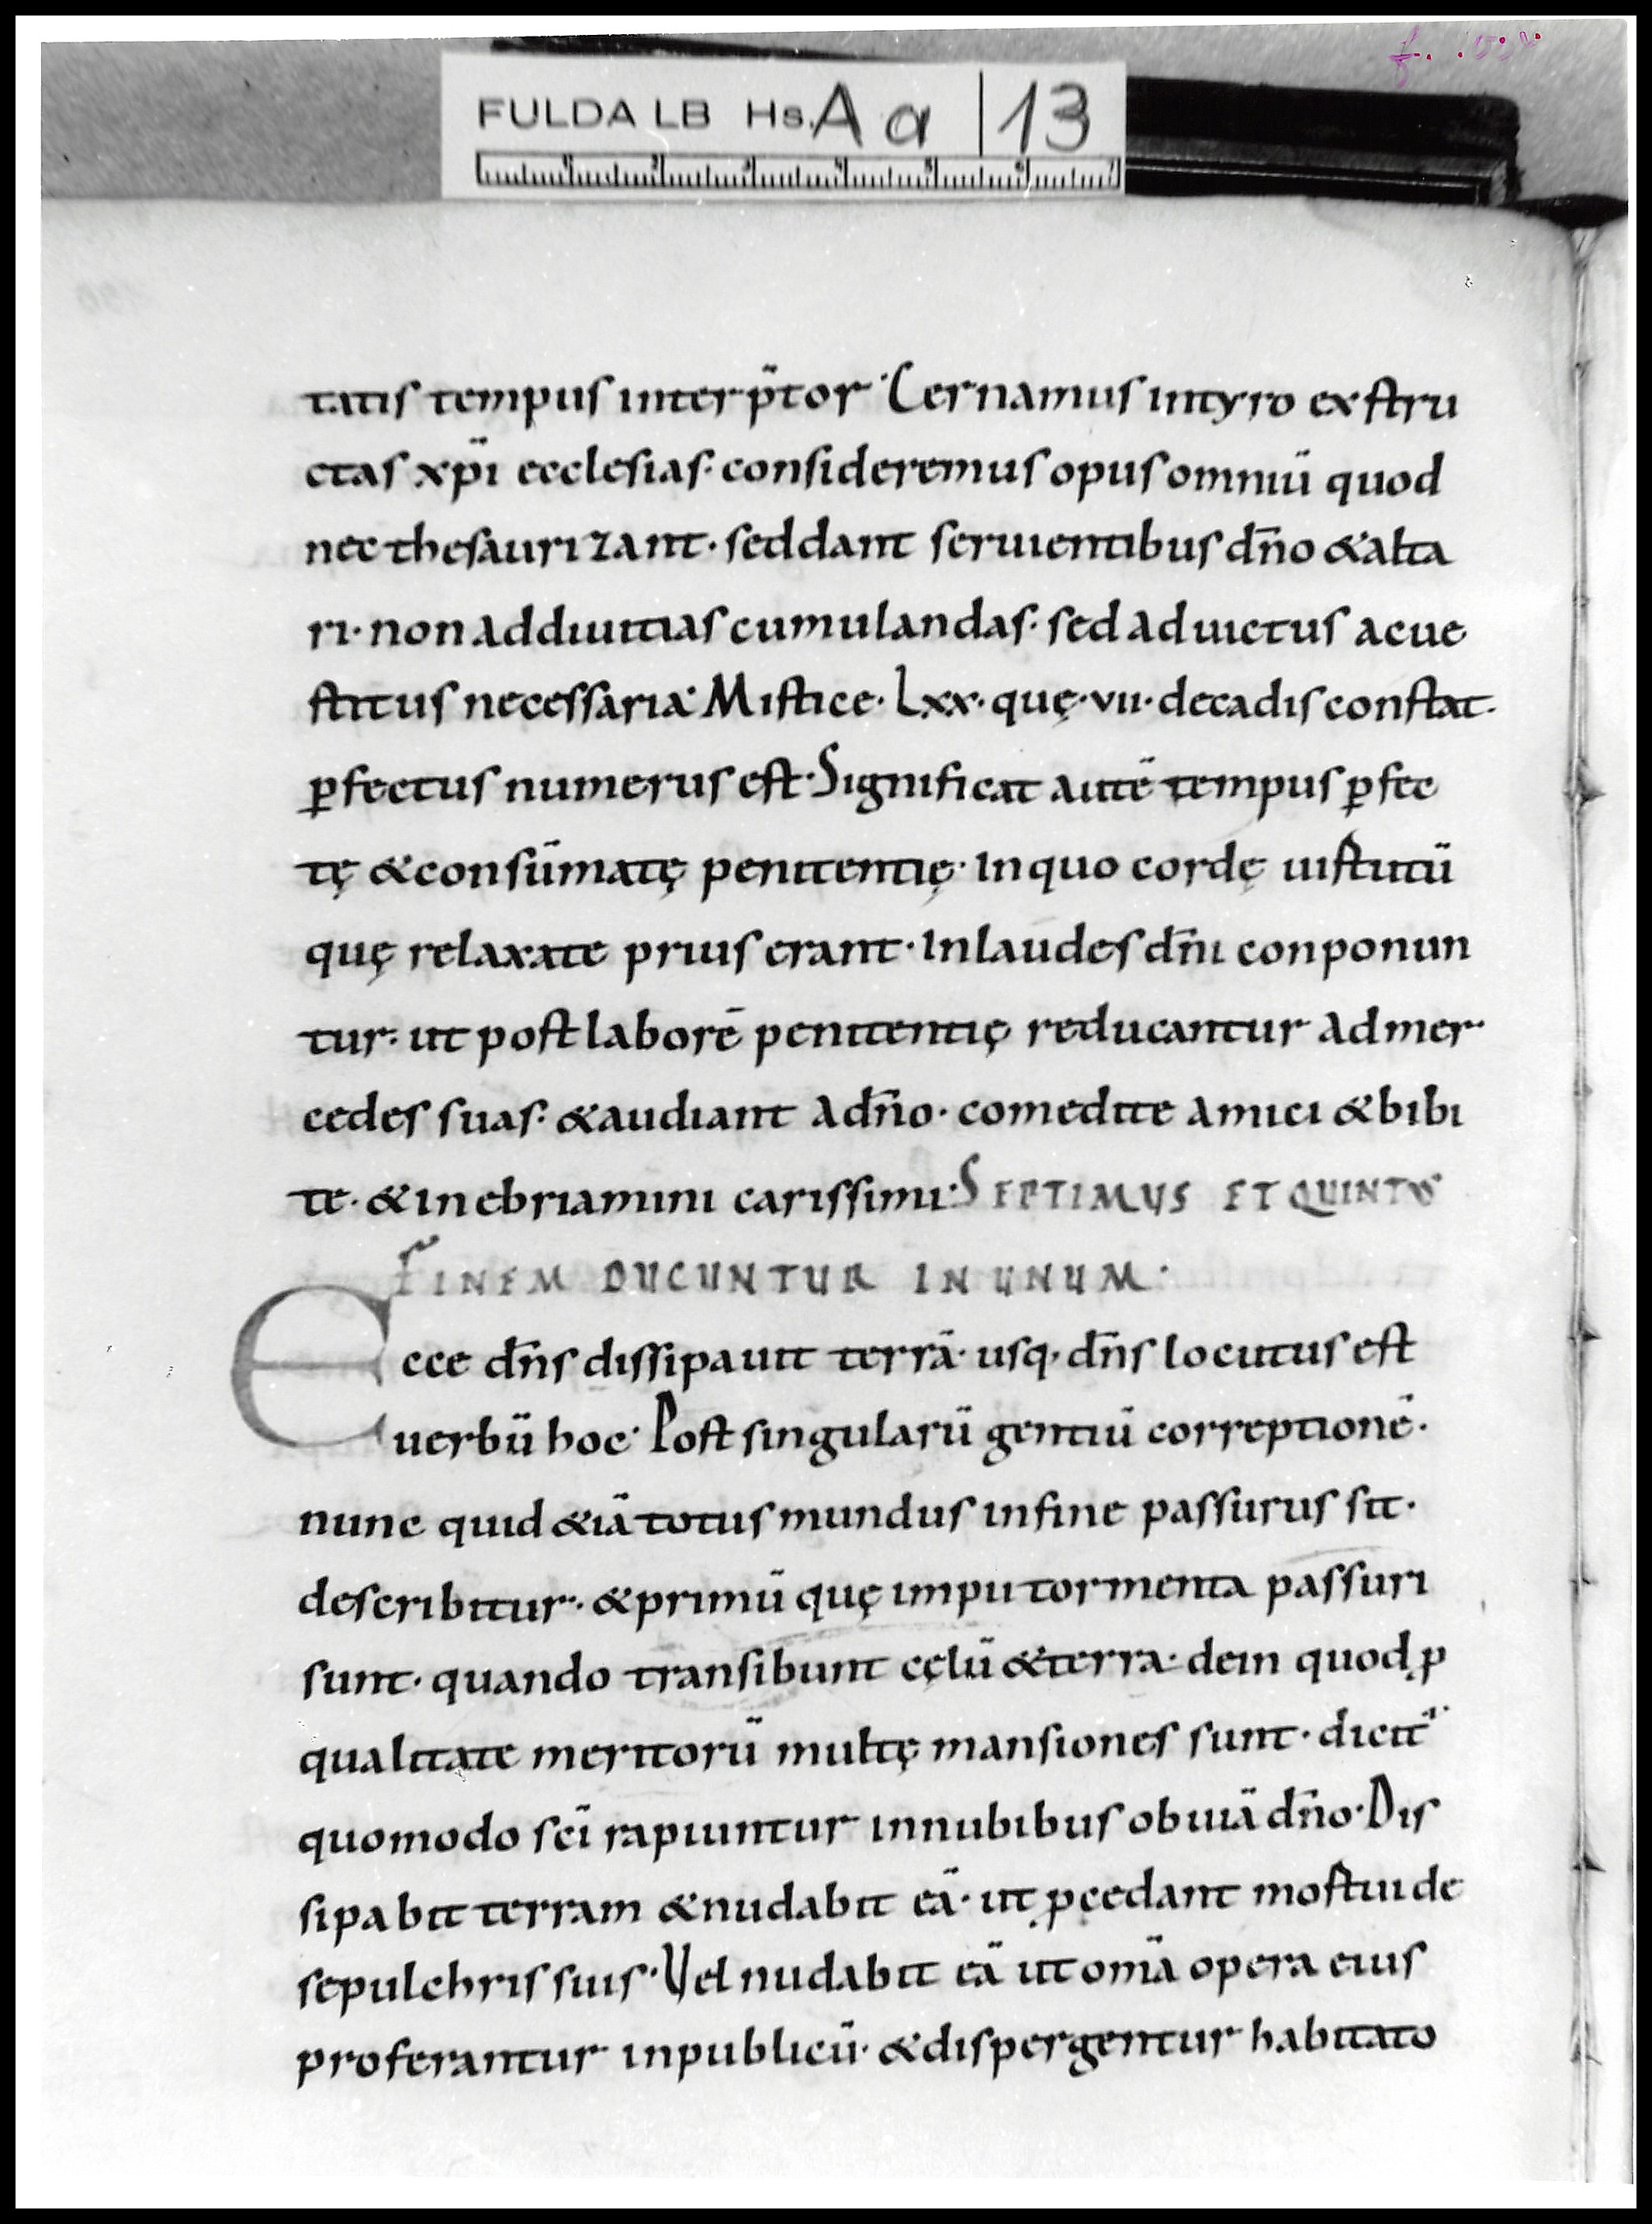 FULDA LB Hs. Aa 13
tatis tempus interp̄tor· Cernamus intyro exstru
ctas xp̄i ecclesias· consideremus opus omniū quod
nec thesaurizant· sed dant seruientibus dn̄o & alta
ri· non ad diuitias cumulandas· sed ad uictus ac ue
stitus necessaria· Mistice· Lxx· quę· vii· decadis constat·
ꝑfectus numerus est· Significat autē tempus ꝑfec
tę & consūmatę penitentię· In quo cordę uistutū
quę relaxate prius erant· In laudes dn̄i conponun
tur· ut post laborē penitentię reducantur ad mer
cedes suas· & audiant a dn̄o· comedite amici & bibi
te· & inebriamini carissimi· SEPTIMUS ET QUINTUS
FINEM DUCUNTUR IN UNUM·
Ecce dn̄s dissipauit terrā· usq· dn̄s locutus est
uerbū hoc· Post singularū gentiū correptionē·
nunc quid &iā totus mundus in fine passurus sit·
describitur· & primū quę impii tormenta passuri
sunt· quando transibunt cęlū & terra· dein quod ꝓ
qualitate meritorū multę mansiones sunt· dicit᷑·
quomodo sc̄i rapiuntur in nubibus obuiā dn̄o· Dis
sipabit terram & nudabit eā· ut ꝓcedant mostui de
sepulchris suis· Uel nudabit eā ut om̄a opera eius
proferantur in publicū· & dispergentur habitato